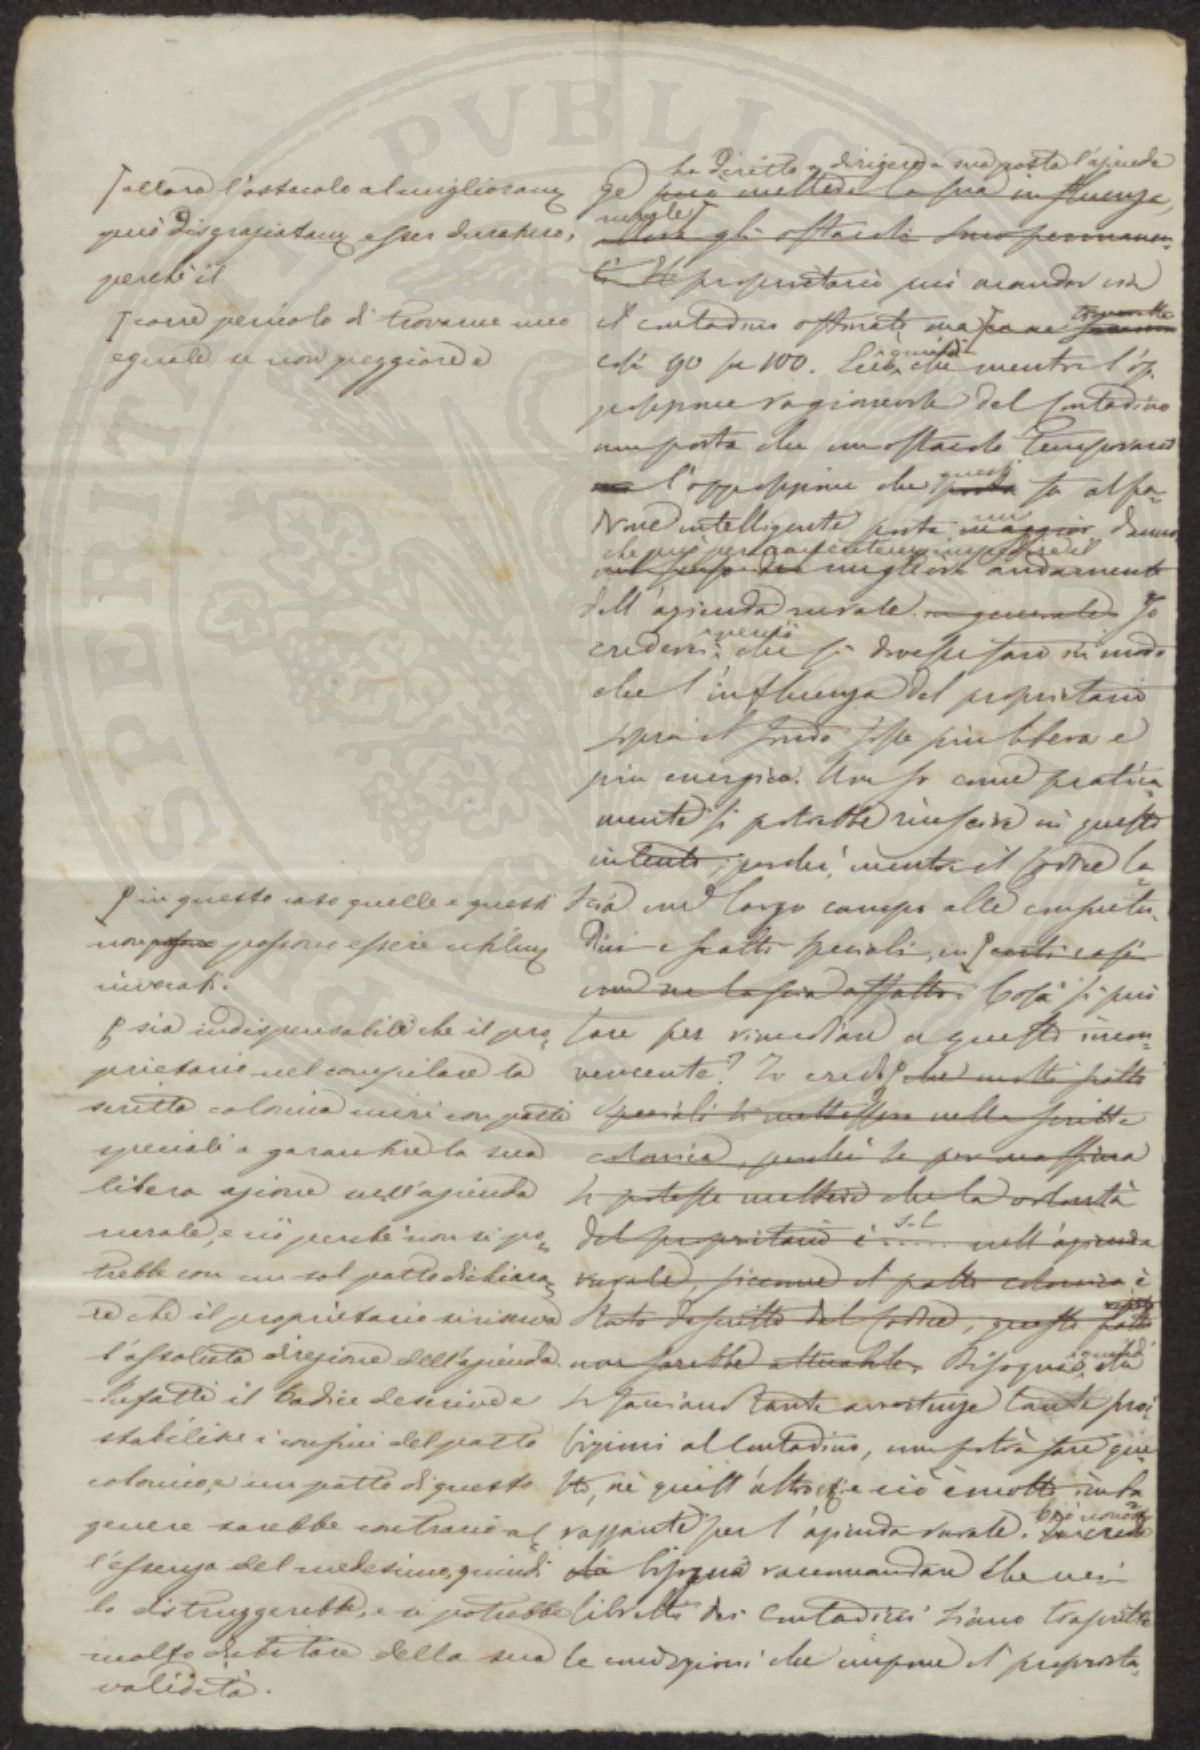 allora l'ostacolo al miglioram
può disgraziatam esser duraturo,
perché il
corre pericolo di trovarne uno
eguale se non peggiore e
in questo caso quelle e questi
non possono possono essere utilm
invocati.
sia indispensabile che il pro=
prietario nel compilare la
scritta colonica miri con patti
speciali a garantire la sua
libera azione nell'azienda
rurale, e ciò perché non si po=
trebbe con un sol patto dichiara=
re che il proprietario si riserva
l'assoluta direzione dell'azienda.
Infatti il Codice descrive e
stabilisce i confini del patto
colonico, e un patto di questo
genere sarebbe contrario al=
l'essenza del medesimo, quindi
lo distruggerebbe, e si potrebbe
molto dubitare della sua
validità.
ha diritto di dirigere a sua posta l'azienda
ge può mettere la sua influenza,
rurale
allora gli ostacoli sono permanen=
ti. Il proprietario può mandar via
il contadino ostinato, ma
casi 90 per 100. Sicché quindi mentre l'op=
posizione ragionevole del Contadino
non porta che un ostacolo temporaneo
ma l'opposizione che questi porta fa al pa=
drone intelligente porta un maggior danno
che può permanentemente impedire il
migliore andamento
dell'azienda rurale in generale. Io
crederei perciò che si dovesse fare in modo
che l'influenza del proprietario
sopra il fondo fosse più libera e
più energica. Non so come pratica=
mente si potrebbe riuscire in questo
intento, perché, mentre il Codice la=
scia un largo campo alle consuetu=
dini e patti speciali, in certi casi
non ne lascia affatto. Cosa si può
fare per rimediare a questo incon=
veniente? Io credo che molti patti
speciali si mettessero nella scritta
colonica, perché se per massima
si potesse mettere che la volontà
del proprietario è s.l. ...... nell'azienda
rurale, siccome il patto colonico è
stato descritto dal Codice, questo patto
non sarebbe attuabile. Bisogna quindi che
si facciano tante avvertenze tante proi=
bizioni al Contadino, non potrà fare que=
sto, né quell'altro, e ciò è molto imba=
razzante per l'azienda rurale.
bisogna raccomandare che nei
libretti dei Contadini siano trascritte
le condizioni che impone il proprieta=